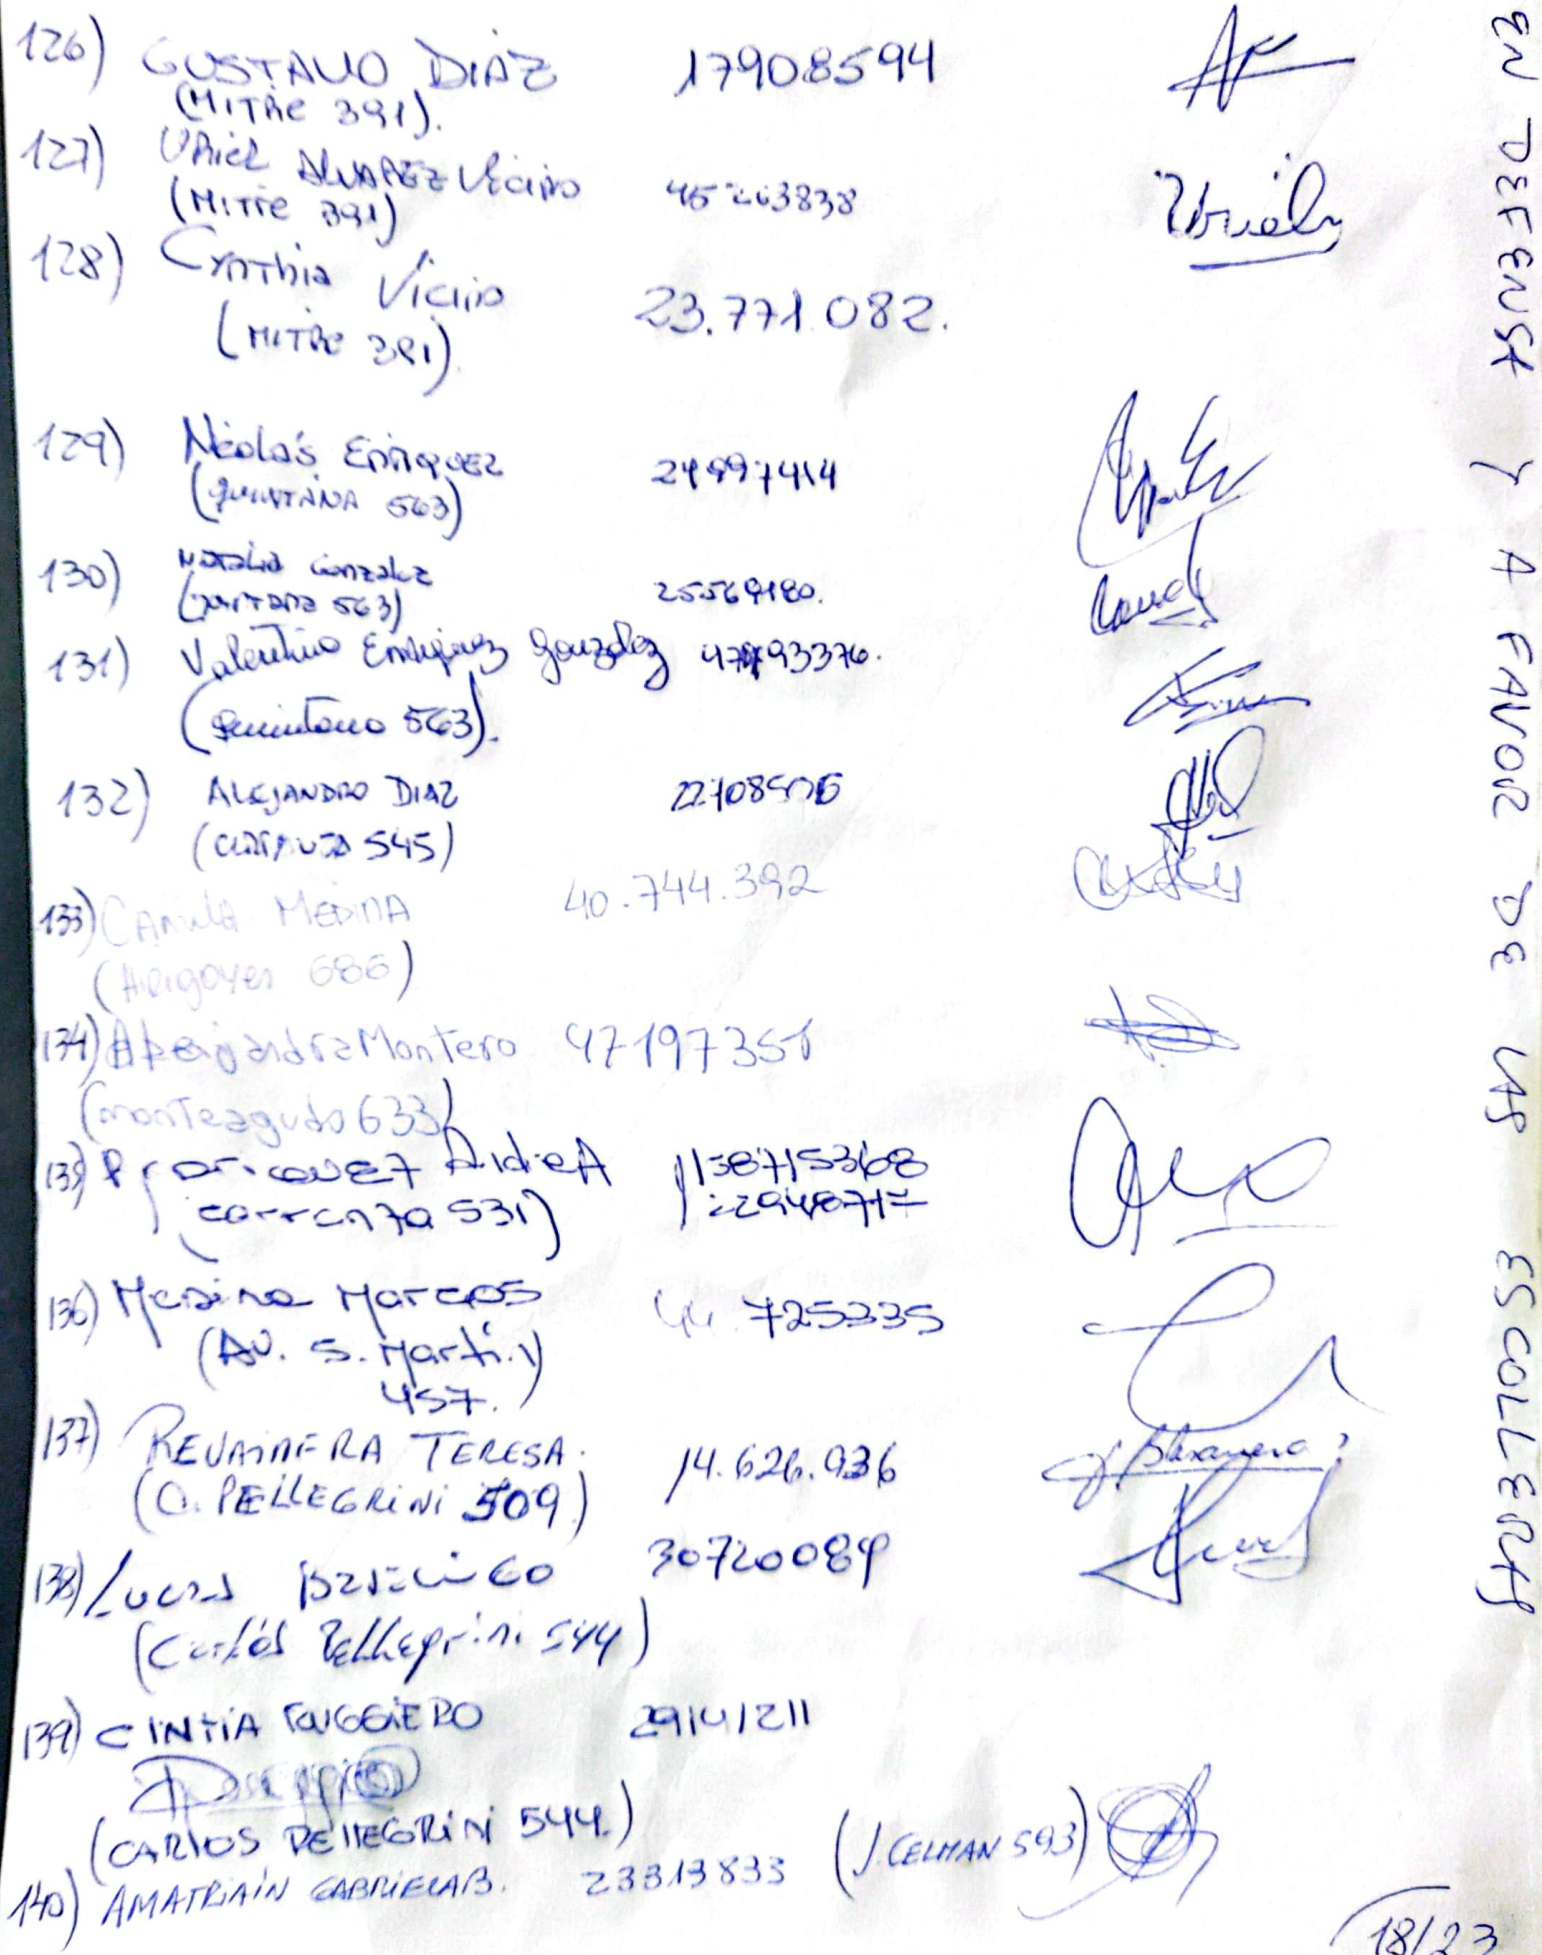 126) GUSTAVO DIAZ 17908594
(MITRE 391).
127) URIEL ALVAREZ Vicino 45 263838
(MITRE 391)
128) Cynthia Vicino 23.771.082.
(MITRE 391)
129) Nicolás ENRIQUEZ 24997414
(QUINTANA 563)
130) Natalia Gonzalez 25569180.
(Quintana 563)
131) Valentino Enriquez Gonzalez 93376.
(Quintana 563).
132) ALEJANDRO DIAZ
545)
133) CAMILA MEDINA 40.744.392
(HIRIGOYEN 686)
134) Alejandra Montero 47197351
(monteagudo 633)
135) 1158715368
carranza 531) 22948717
136) Medina Marcos 44.725335
(AV. S. Martin
457.)
137) TERESA. 14.626.936
(C. PELLEGRINI 509)
138) Lucas 30720089
(Carlos Pellegrini 544)
139) CINTIA RUGGIERO 29141211
(CARLOS PELLEGRINI 544.)
140) AMATRIAIN GABRIELA B. 23313833 (J. CELMAN 593)
18/23
EN DEFENSA Y A FAVOR DE LAS ESCOLLERAS